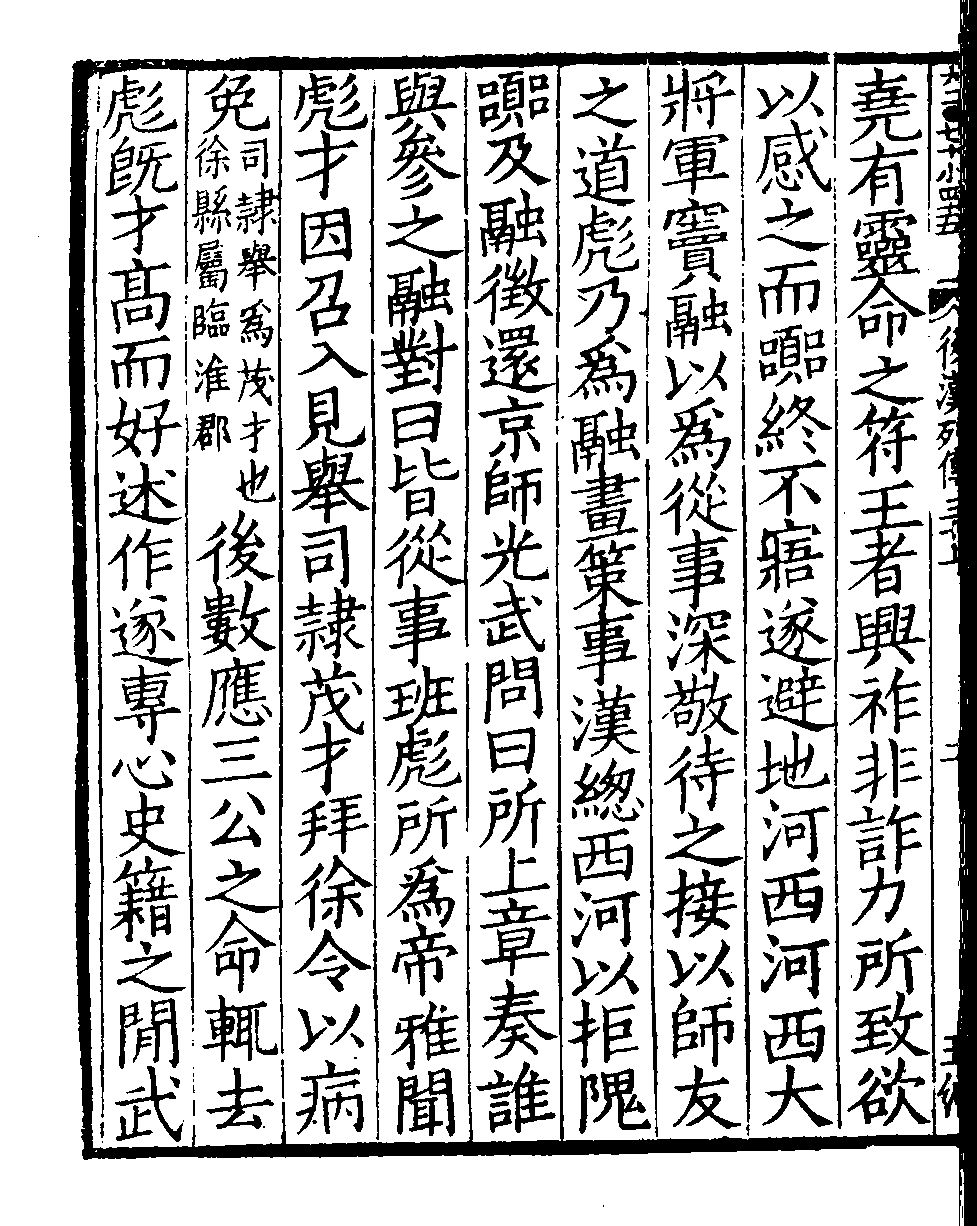 堯有靈命之符王者興祚非詐力所致欲
以感之而嚻終不寤遂避地河西河西大
將軍竇融以爲從事深敬待之接以師友
之道彪乃爲融畫策事漢緫西河以拒隗
嚻及融徵還京師光武問曰所上章奏誰
與參之融對曰皆從事班彪所爲帝雅聞
彪才因召入見舉司隷茂才拜徐令以病
免司隷舉爲茂才也徐縣屬臨淮郡後數應三公之命輒去
彪旣才髙而好述作遂專心史籍之閒武
後漢列傳三十上
二